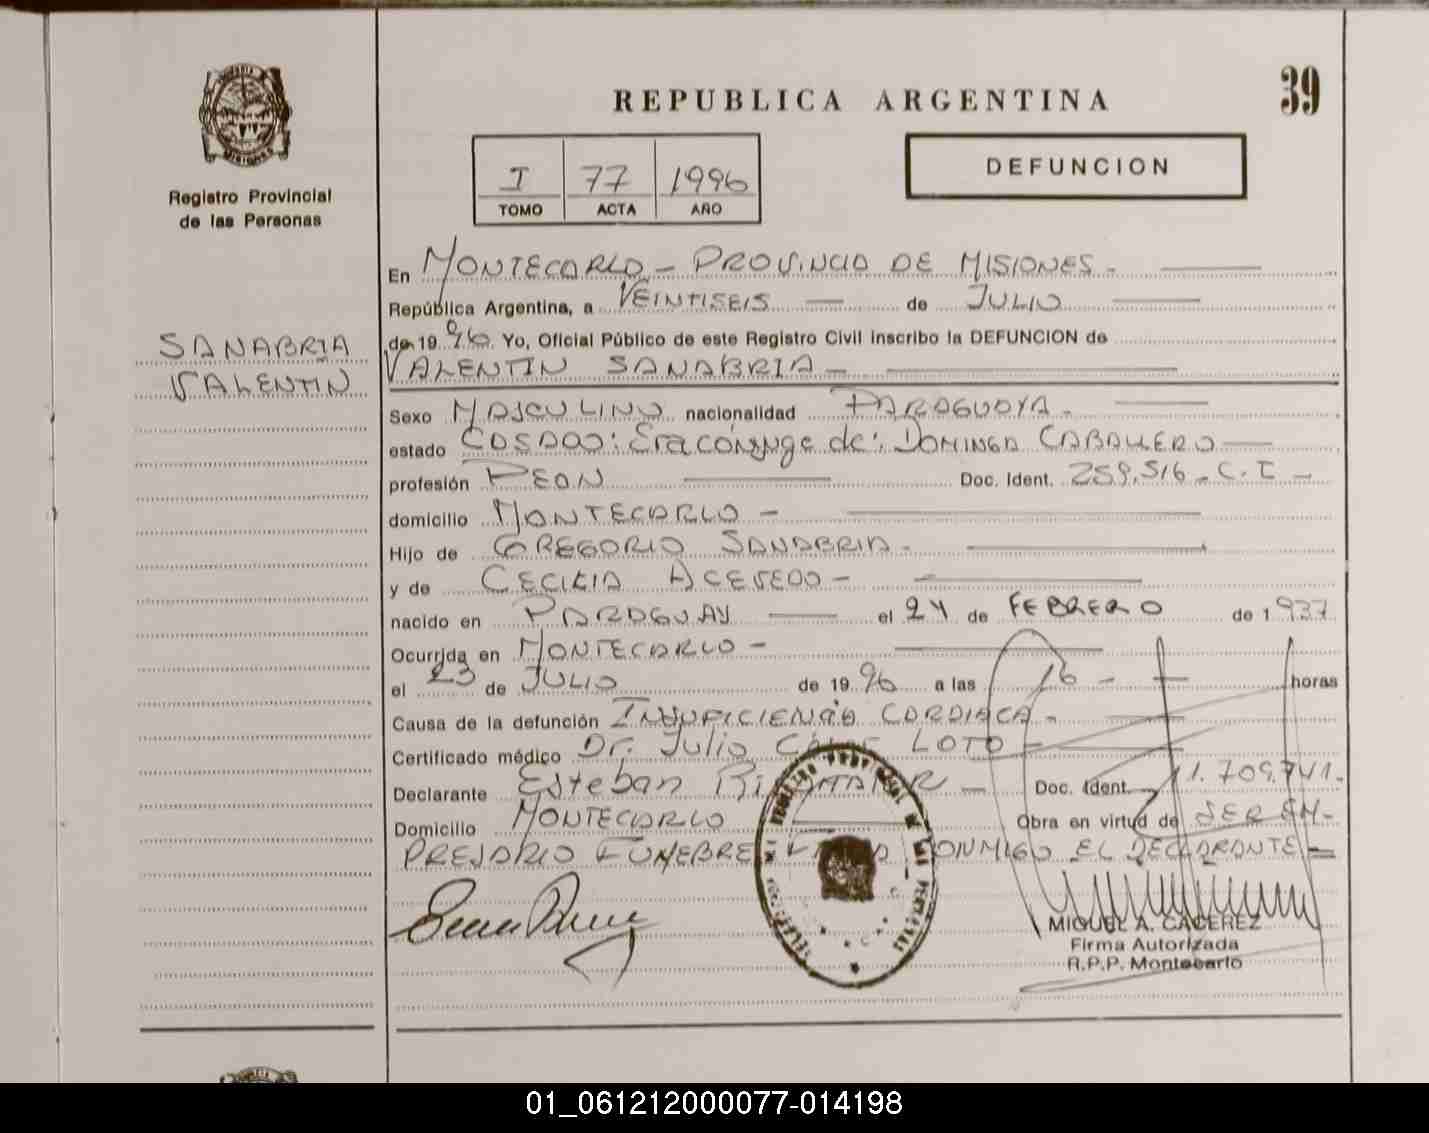 39
REPUBLICA ARGENTINA
DEFUNCION
MISIONES
Registro Provincial
de las Personas
I 77 1996
TOMO ACTA AÑO
SANABRIA
VALENTIN
En MONTECARLO - PROVINCIA DE MISIONES -
República Argentina, a VEINTISEIS de JULIO
de 1996. Yo, Oficial Público de este Registro Civil inscribo la DEFUNCION de
VALENTIN SANABRIA -
Sexo MASCULINO nacionalidad PARAGUAYA -
estado CASADO: Era cónyuge de: DOMINGA CABALLERO
profesión PEON Doc. Ident. 259.516 - C.I -
domicilio MONTECARLO -
Hijo de GREGORIO SANABRIA -
y de CECILIA ACEVEDO -
nacido en PARAGUAY el 24 de FEBRERO de 1937
Ocurrida en MONTECARLO -
el 23 de JULIO de 1996 a las 16 - horas
Causa de la defunción INSUFICIENCIA CARDIACA -
Certificado médico Dr. Julio César LOTO -
Declarante Esteban Doc. Ident.
Domicilio MONTECARLO Obra en virtud de SER EM-
PRESARIO FUNEBRE FIRMA CONMIGO EL DECLARANTE -
MIGUEL A. CACEREZ
Firma Autorizada
R.P.P. Montecarlo
01_061212000077-014198